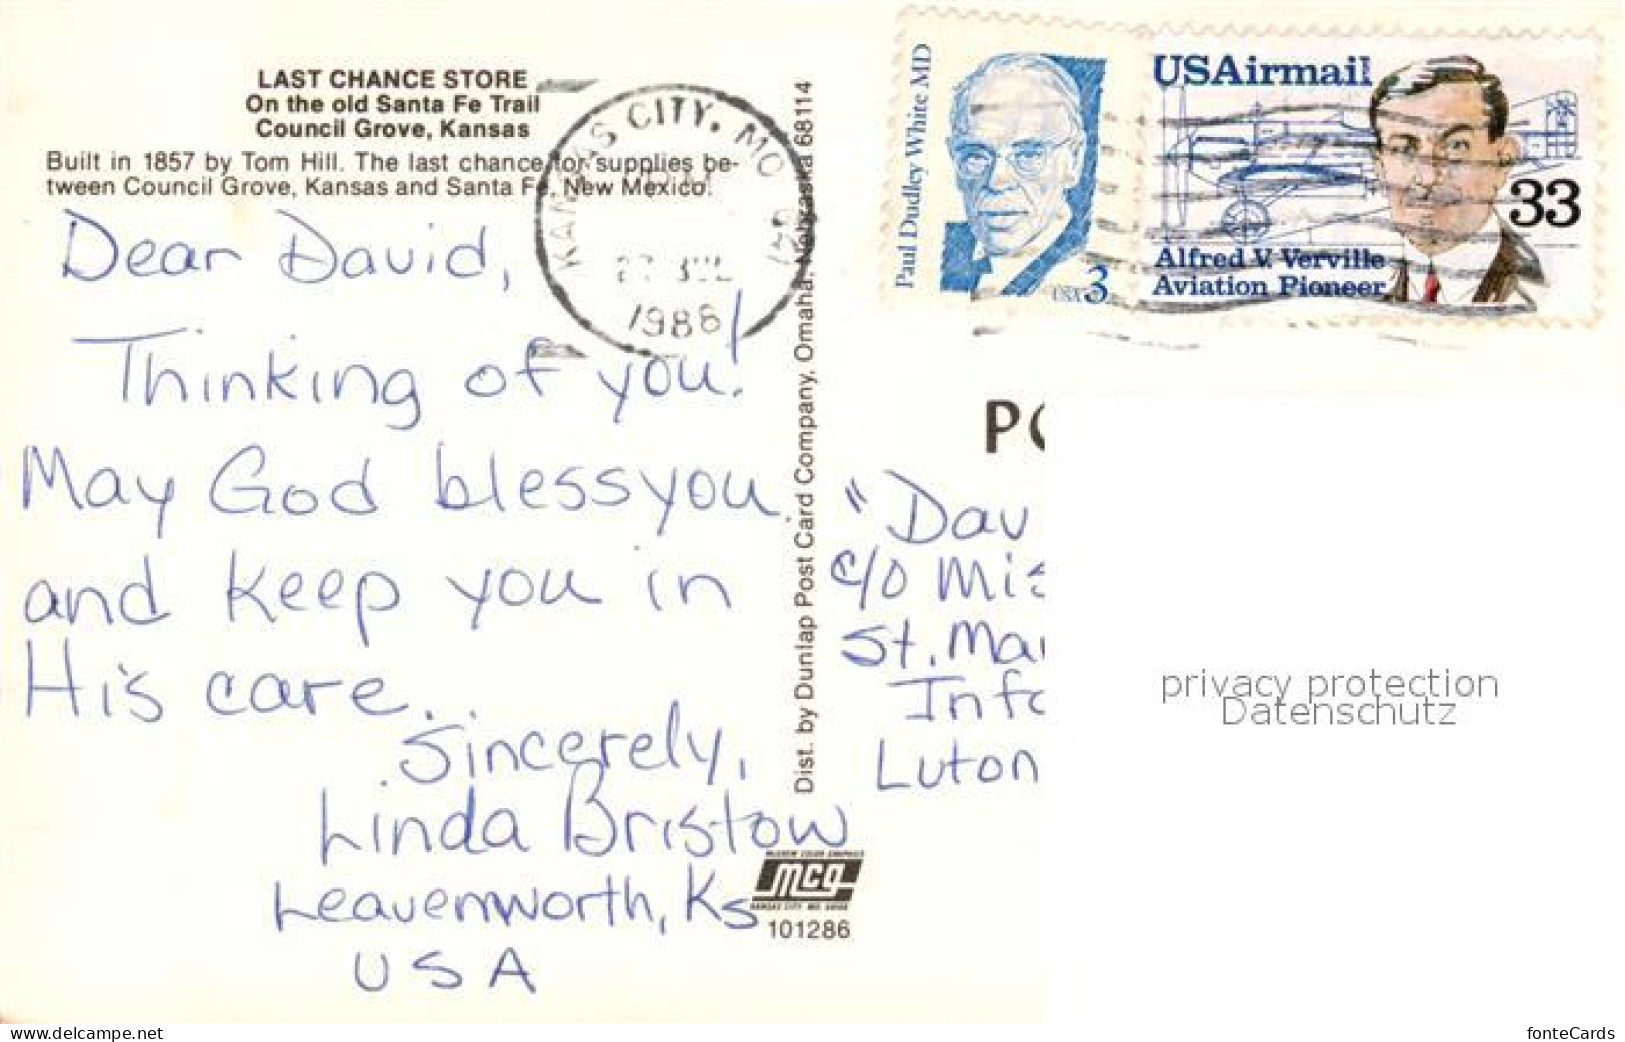 LAST CHANCE STORE
On the old Santa Fe Trail
Council Grove, Kansas
Built in 1857 by Tom Hill. The last chance for supplies be-
tween Council Grove, Kansas and Santa Fe, New Mexico.
Dear David,
Thinking of you!
May God bless you
and keep you in
His care.
Sincerely,
Linda Bristow
Leavenworth, Ks
USA
KANSAS CITY, MO
JUL
1986
Dist. by Dunlap Post Card Company, Omaha, Nebraska 68114
Paul Dudley White MD
USA 3
USAirmail
33
Alfred V. Verville
Aviation Pioneer
PO
"Dav
c/o Mis
St. Mar
Info
Luton
MCG
101286
privacy protection
Datenschutz
www.delcampe.net
fonteCards